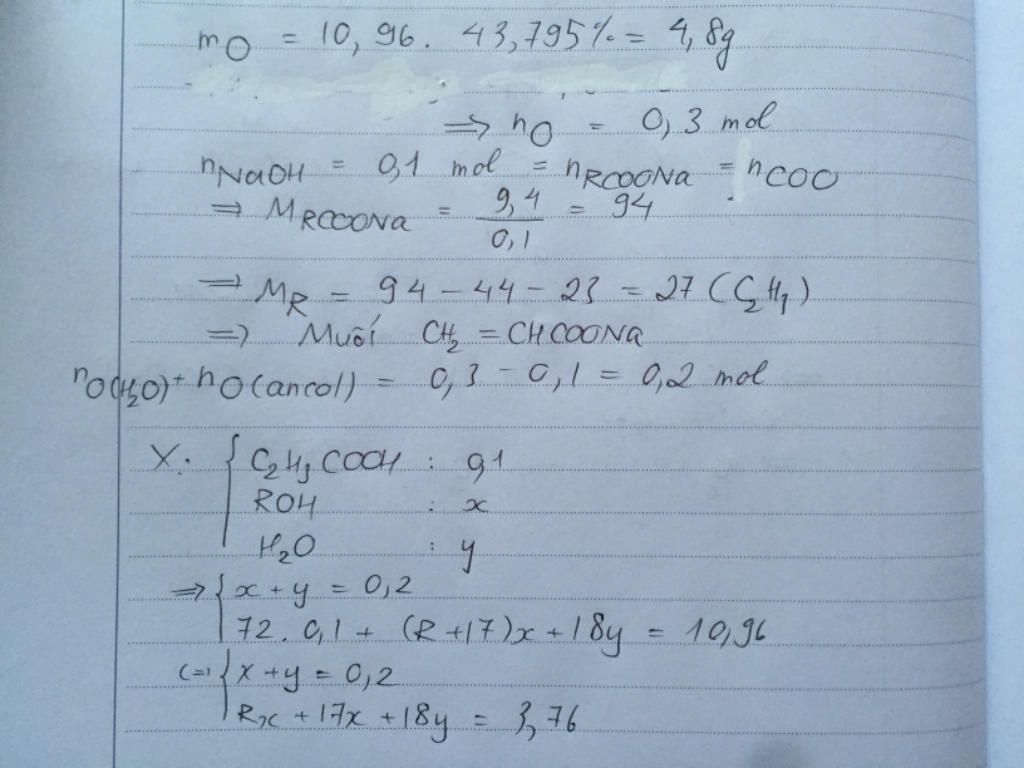 mO = 10,96. 43,795% = 4,8g
=> nO = 0,3 mol
nNaOH = 0,1 mol = nRCOONa = nCOO
=> MRCOONa = 9,4/0,1 = 94
=> MR = 94 - 44 - 23 = 27 (C2H3)
=> Muối CH2 = CHCOONa
nO(H2O) + nO(ancol) = 0,3 - 0,1 = 0,2 mol
X. { C2H3COOH : 0,1
ROH : x
H2O : y
=> { x + y = 0,2
72. 0,1 + (R + 17)x + 18y = 10,96
(=) { x + y = 0,2
Rx + 17x + 18y = 3,76